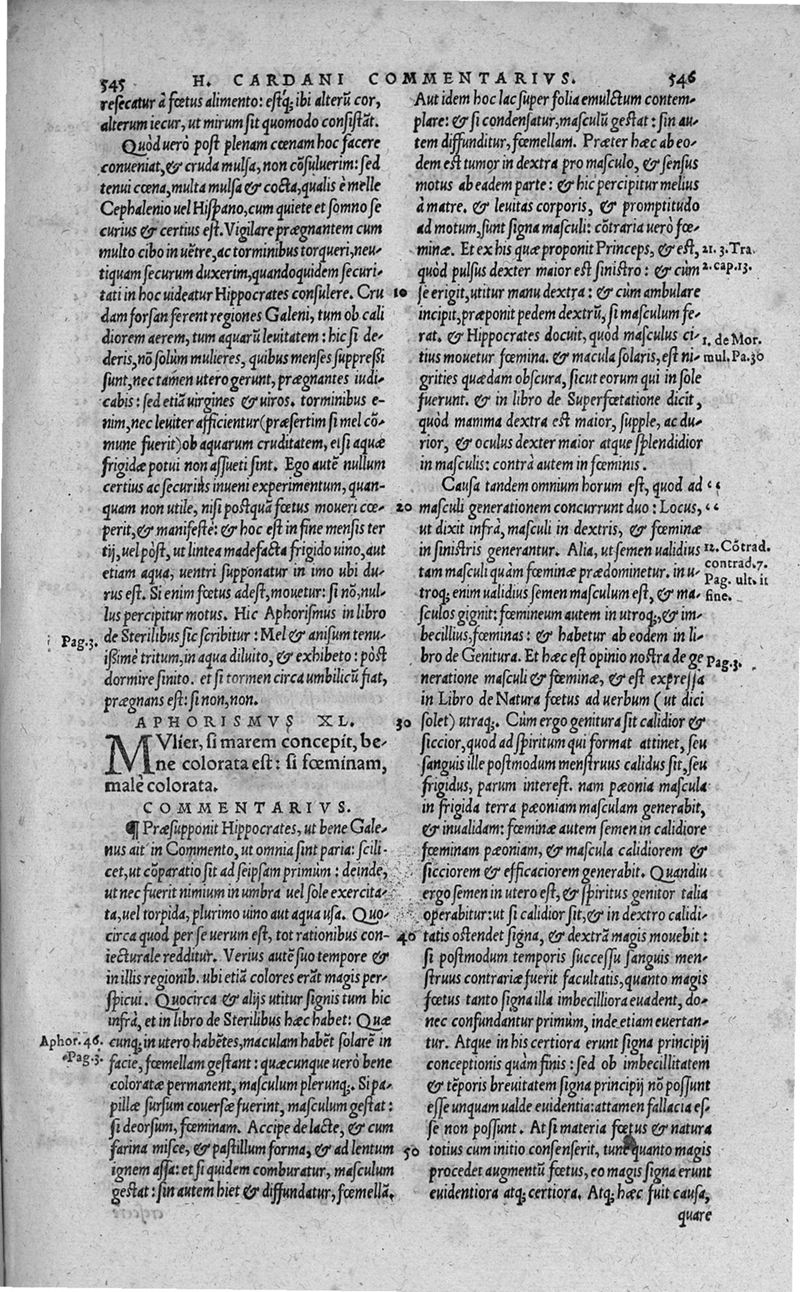 545 H. CARDANI COMMENTARIVS. 546
resecatur à fœtus alimento: estq́; ibi alterũ cor,
alterum iecur, ut mirum sit quomodo consistãt.
Quòd uerò post plenam cœnam hoc facere
conueniat, & cruda mulsa, non cõsuluerim: sed
tenui cœna, multa mulsa & cocta, qualis è melle
Cephalenio uel Hispano, cum quiete et somno se
curius & certius est. Vigilare prægnantem cum
multo cibo in uẽtre, ac torminibus torqueri, neu-
tiquam securum duxerim, quandoquidem securi-
tati in hoc uideatur Hippocrates consulere. Cru
dam forsan ferent regiones Galeni, tum ob cali
diorem aerem, tum aquarũ leuitatem: hic si de-
deris, nõ solùm mulieres, quibus menses suppressi
sunt, nec tamen utero gerunt, prægnantes iudi-
cabis: sed etiã uirgines & uiros. torminibus e-
nim, nec leuiter afficientur (præsertim si mel cõ-
mune fuerit) ob aquarum cruditatem, et si aquæ
frigidæ potui non assueti sint. Ego autẽ nullum
certius ac securius inueni experimentum, quan-
quam non utile, nisi postquã fœtus moueri cœ-
perit, & manifestè: & hoc est in fine mensis ter
tij, uel pòst, ut lintea madefacta frigido uino, aut
etiam aqua, uentri supponatur in imo ubi du-
rus est. Si enim fœtus adest, mouetur: si nõ, nul-
lus percipitur motus. Hic Aphorismus in libro
Pag.3. de Sterilibus sic scribitur: Mel & anisum tenu-
issimè tritum, in aqua diluito, & exhibeto: pòst
dormire sinito. et si tormen circa umbilicũ fiat,
prægnans est: si non, non.
APHORISMVS XL.
MVlier, si marem concepit, be-
ne colorata est: si fœminam,
malè colorata.
COMMENTARIVS.
¶ Præsupponit Hippocrates, ut bene Gale-
nus ait in Commento, ut omnia sint paria: scili-
cet, ut cõparatio sit ad seipsam primùm: deinde,
ut nec fuerit nimium in umbra uel sole exercita-
ta, uel torpida, plurimo uino aut aqua usa. Quo-
circa quod per se uerum est, tot rationibus con-
iecturale redditur. Verius autẽ suo tempore &
in illis regionib. ubi etiã colores erãt magis per-
spicui. Quocirca & alijs utitur signis tum hic
infrà, et in libro de Sterilibus hæc habet: Quæ
Aphor. 46. cunq; in utero habẽtes, maculam habẽt solarẽ in
Pag.3. facie, fœmellam gestant: quæcunque uerò bene
coloratæ permanent, masculum plerunq;. Si pa-
pillæ sursum couersæ fuerint, masculum gestat:
si deorsum, fœminam. Accipe de lacte, & cum
farina misce, & pastillum forma, & ad lentum
ignem assa: et si quidem comburatur, masculum
gestat: sin autem hiet & diffundatur, fœmellã.
Aut idem hoc lac super folia emulctum contem-
plare: & si condensatur, masculũ gestat: sin au-
tem diffunditur, fœmellam. Præter hæc ab eo-
dem est tumor in dextra pro masculo, & sensus
motus ab eadem parte: & hic percipitur melius
à matre. & leuitas corporis, & promptitudo
ad motum, sunt signa masculi: cõtraria uerò fœ-
minæ. Et ex his quæ proponit Princeps, & est, 21. 3. Tra.
quòd pulsus dexter maior est sinistro: & cùm 2. cap. 13.
10 se erigit, utitur manu dextra: & cùm ambulare
incipit, præponit pedem dextrũ, si masculum fe-
rat. & Hippocrates docuit, quòd masculus ci- 1. de Mor.
tius mouetur fœmina. & macula solaris, est ni- mul. Pa. 30
grities quædam obscura, sicut eorum qui in sole
fuerunt. & in libro de Superfœtatione dicit,
quòd mamma dextra est maior, supple, ac du-
rior, & oculus dexter maior atque splendidior
in masculis: contrà autem in fœminis.
Causa tandem omnium horum est, quod ad “
20 masculi generationem concurrunt duo: Locus, “
ut dixit infrà, masculi in dextris, & fœminæ
in sinistris generantur. Alia, ut semen ualidius 12. Cõtrad.
tam masculi quàm fœminæ prædominetur. in u- contrad. 7.
troq; enim ualidius semen masculum est, & ma- Pag. ult. ĩ
sculos gignit: fœmineum autem in utroq;, & im- fine.
becillius, fœminas: & habetur ab eodem in li-
bro de Genitura. Et hæc est opinio nostra de ge Pag.3.
neratione masculi & fœminæ, & est expressa
in Libro de Natura fœtus ad uerbum (ut dici
30 solet) utraq;. Cùm ergo genitura sit calidior &
siccior, quod ad spiritum qui format attinet, seu
sanguis ille postmodum menstruus calidus sit, seu
frigidus, parum interest. nam pæonia mascula
in frigida terra pæoniam masculam generabit,
& inualidam: fœminæ autem semen in calidiore
fœminam pæoniam, & mascula calidiorem &
sicciorem & efficaciorem generabit. Quandiu
ergo semen in utero est, & spiritus genitor talia
operabitur: ut si calidior sit, & in dextro calidi-
40 tatis ostendet signa, & dextrã magis mouebit:
si postmodum temporis successu sanguis men-
struus contrariæ fuerit facultatis, quanto magis
fœtus tanto signa illa imbecilliora euadent, do-
nec confundantur primùm, inde etiam euertan-
tur. Atque in his certiora erunt signa principij
conceptionis quàm finis: sed ob imbecillitatem
& tẽporis breuitatem signa principij nõ possunt
esse unquam ualde euidentia: attamen fallacia es-
se non possunt. At si materia fœtus & natura
50 totius cum initio consenserit, tunc quanto magis
procedet augmentũ fœtus, eo magis signa erunt
euidentiora atq; certiora. Atq; hæc fuit causa,
quare